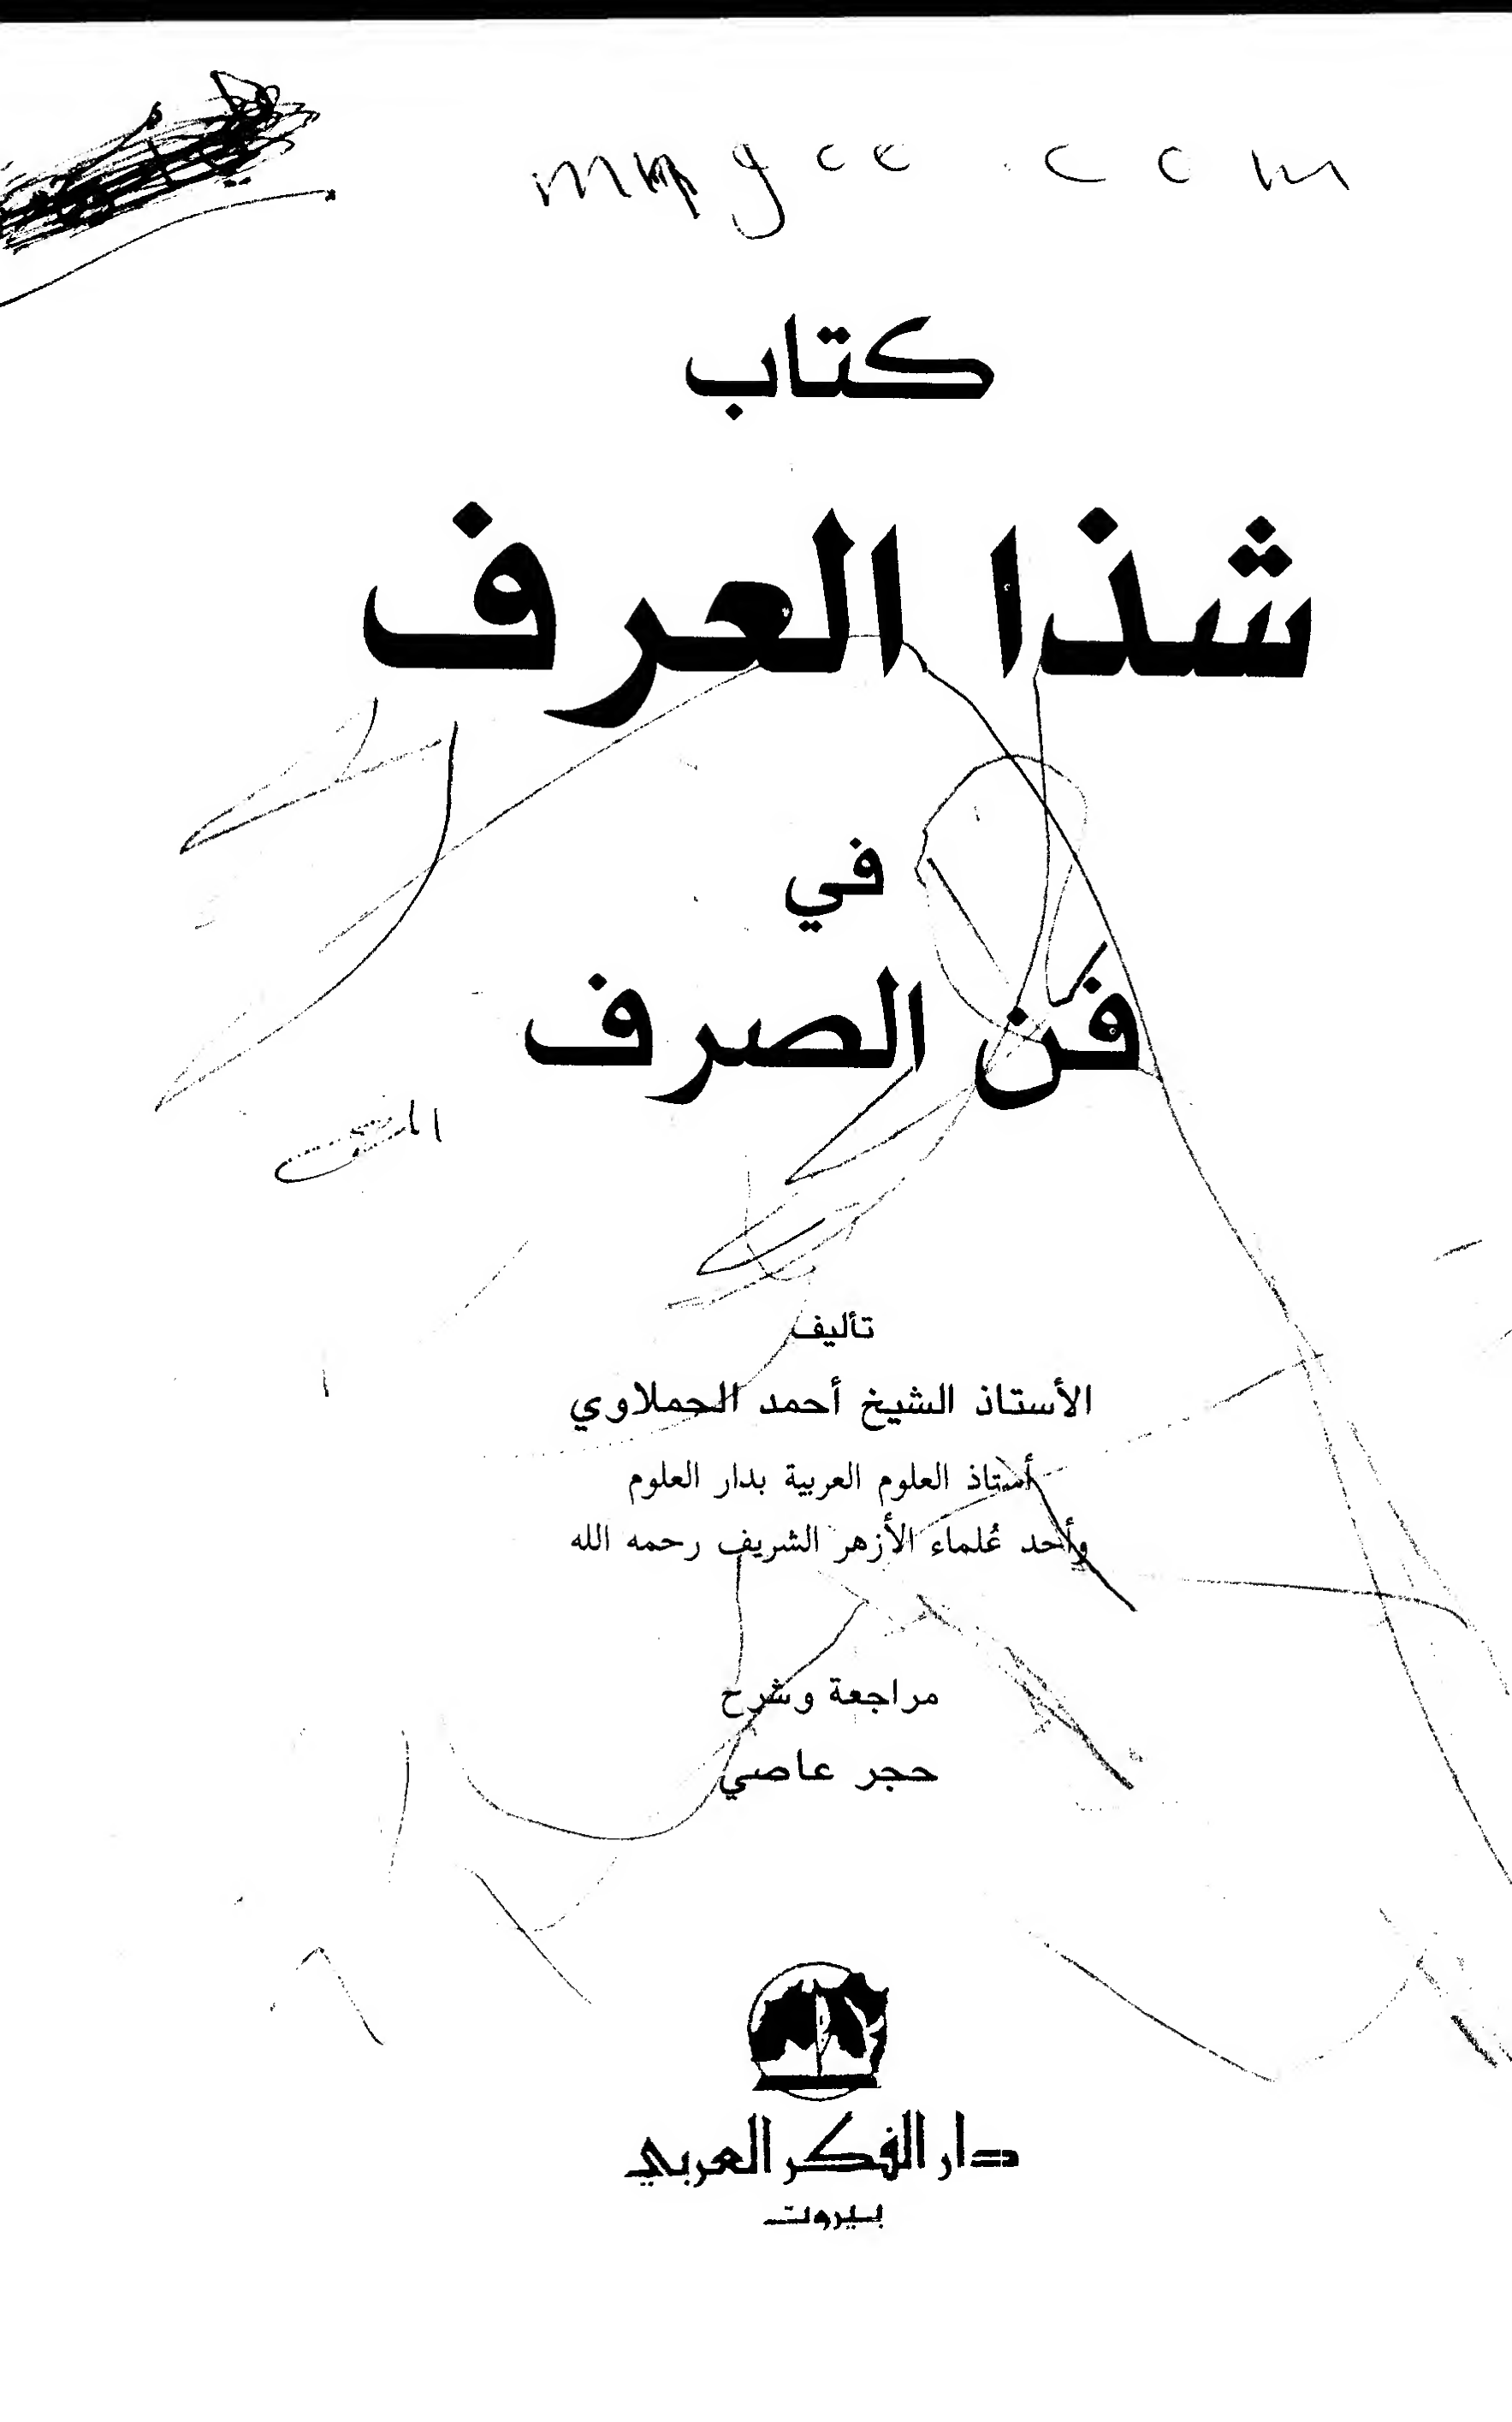 كتاب
شذا العرف
في
فن الصرف
تأليف
الأستاذ الشيخ أحمد الحملاوي
أستاذ العلوم العربية بدار العلوم
وأحد عُلماء الأزهر الشريف رحمه الله
مراجعة وشرح
حجر عاصي
دار الفكر العربي
بيروت